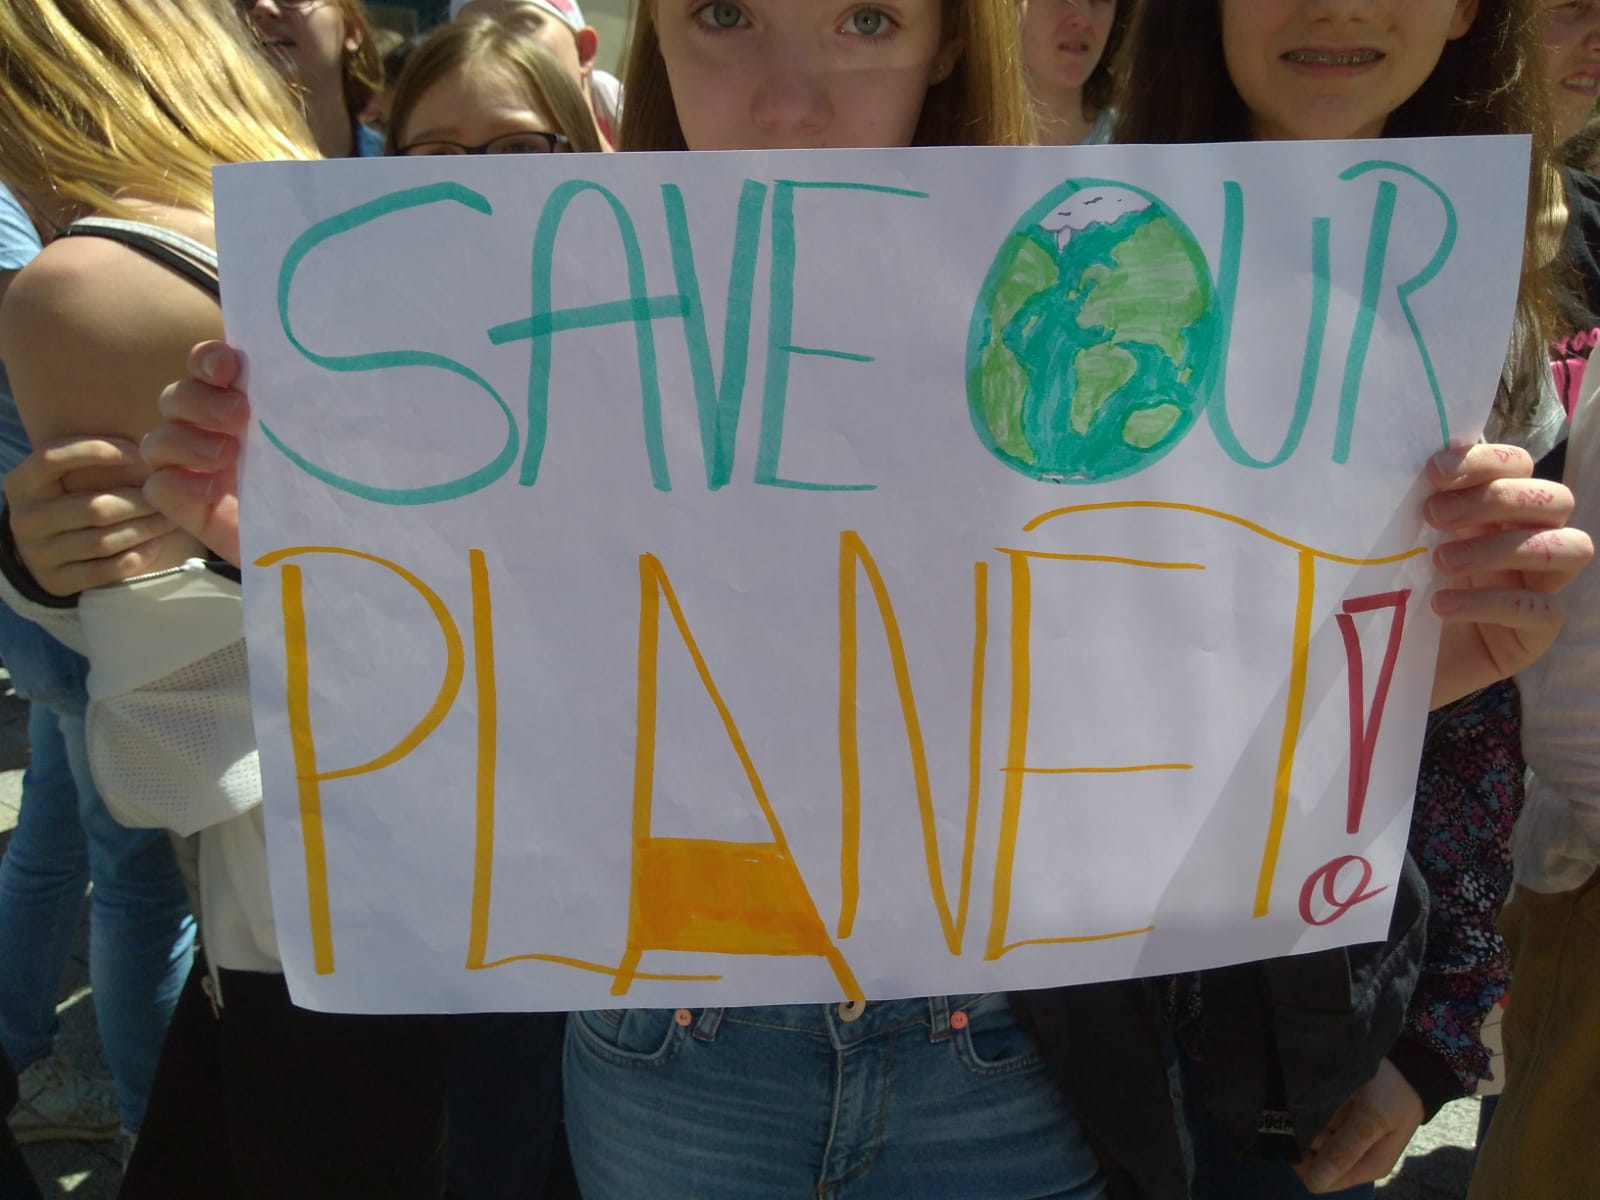 SAVE OUR
PLANET!